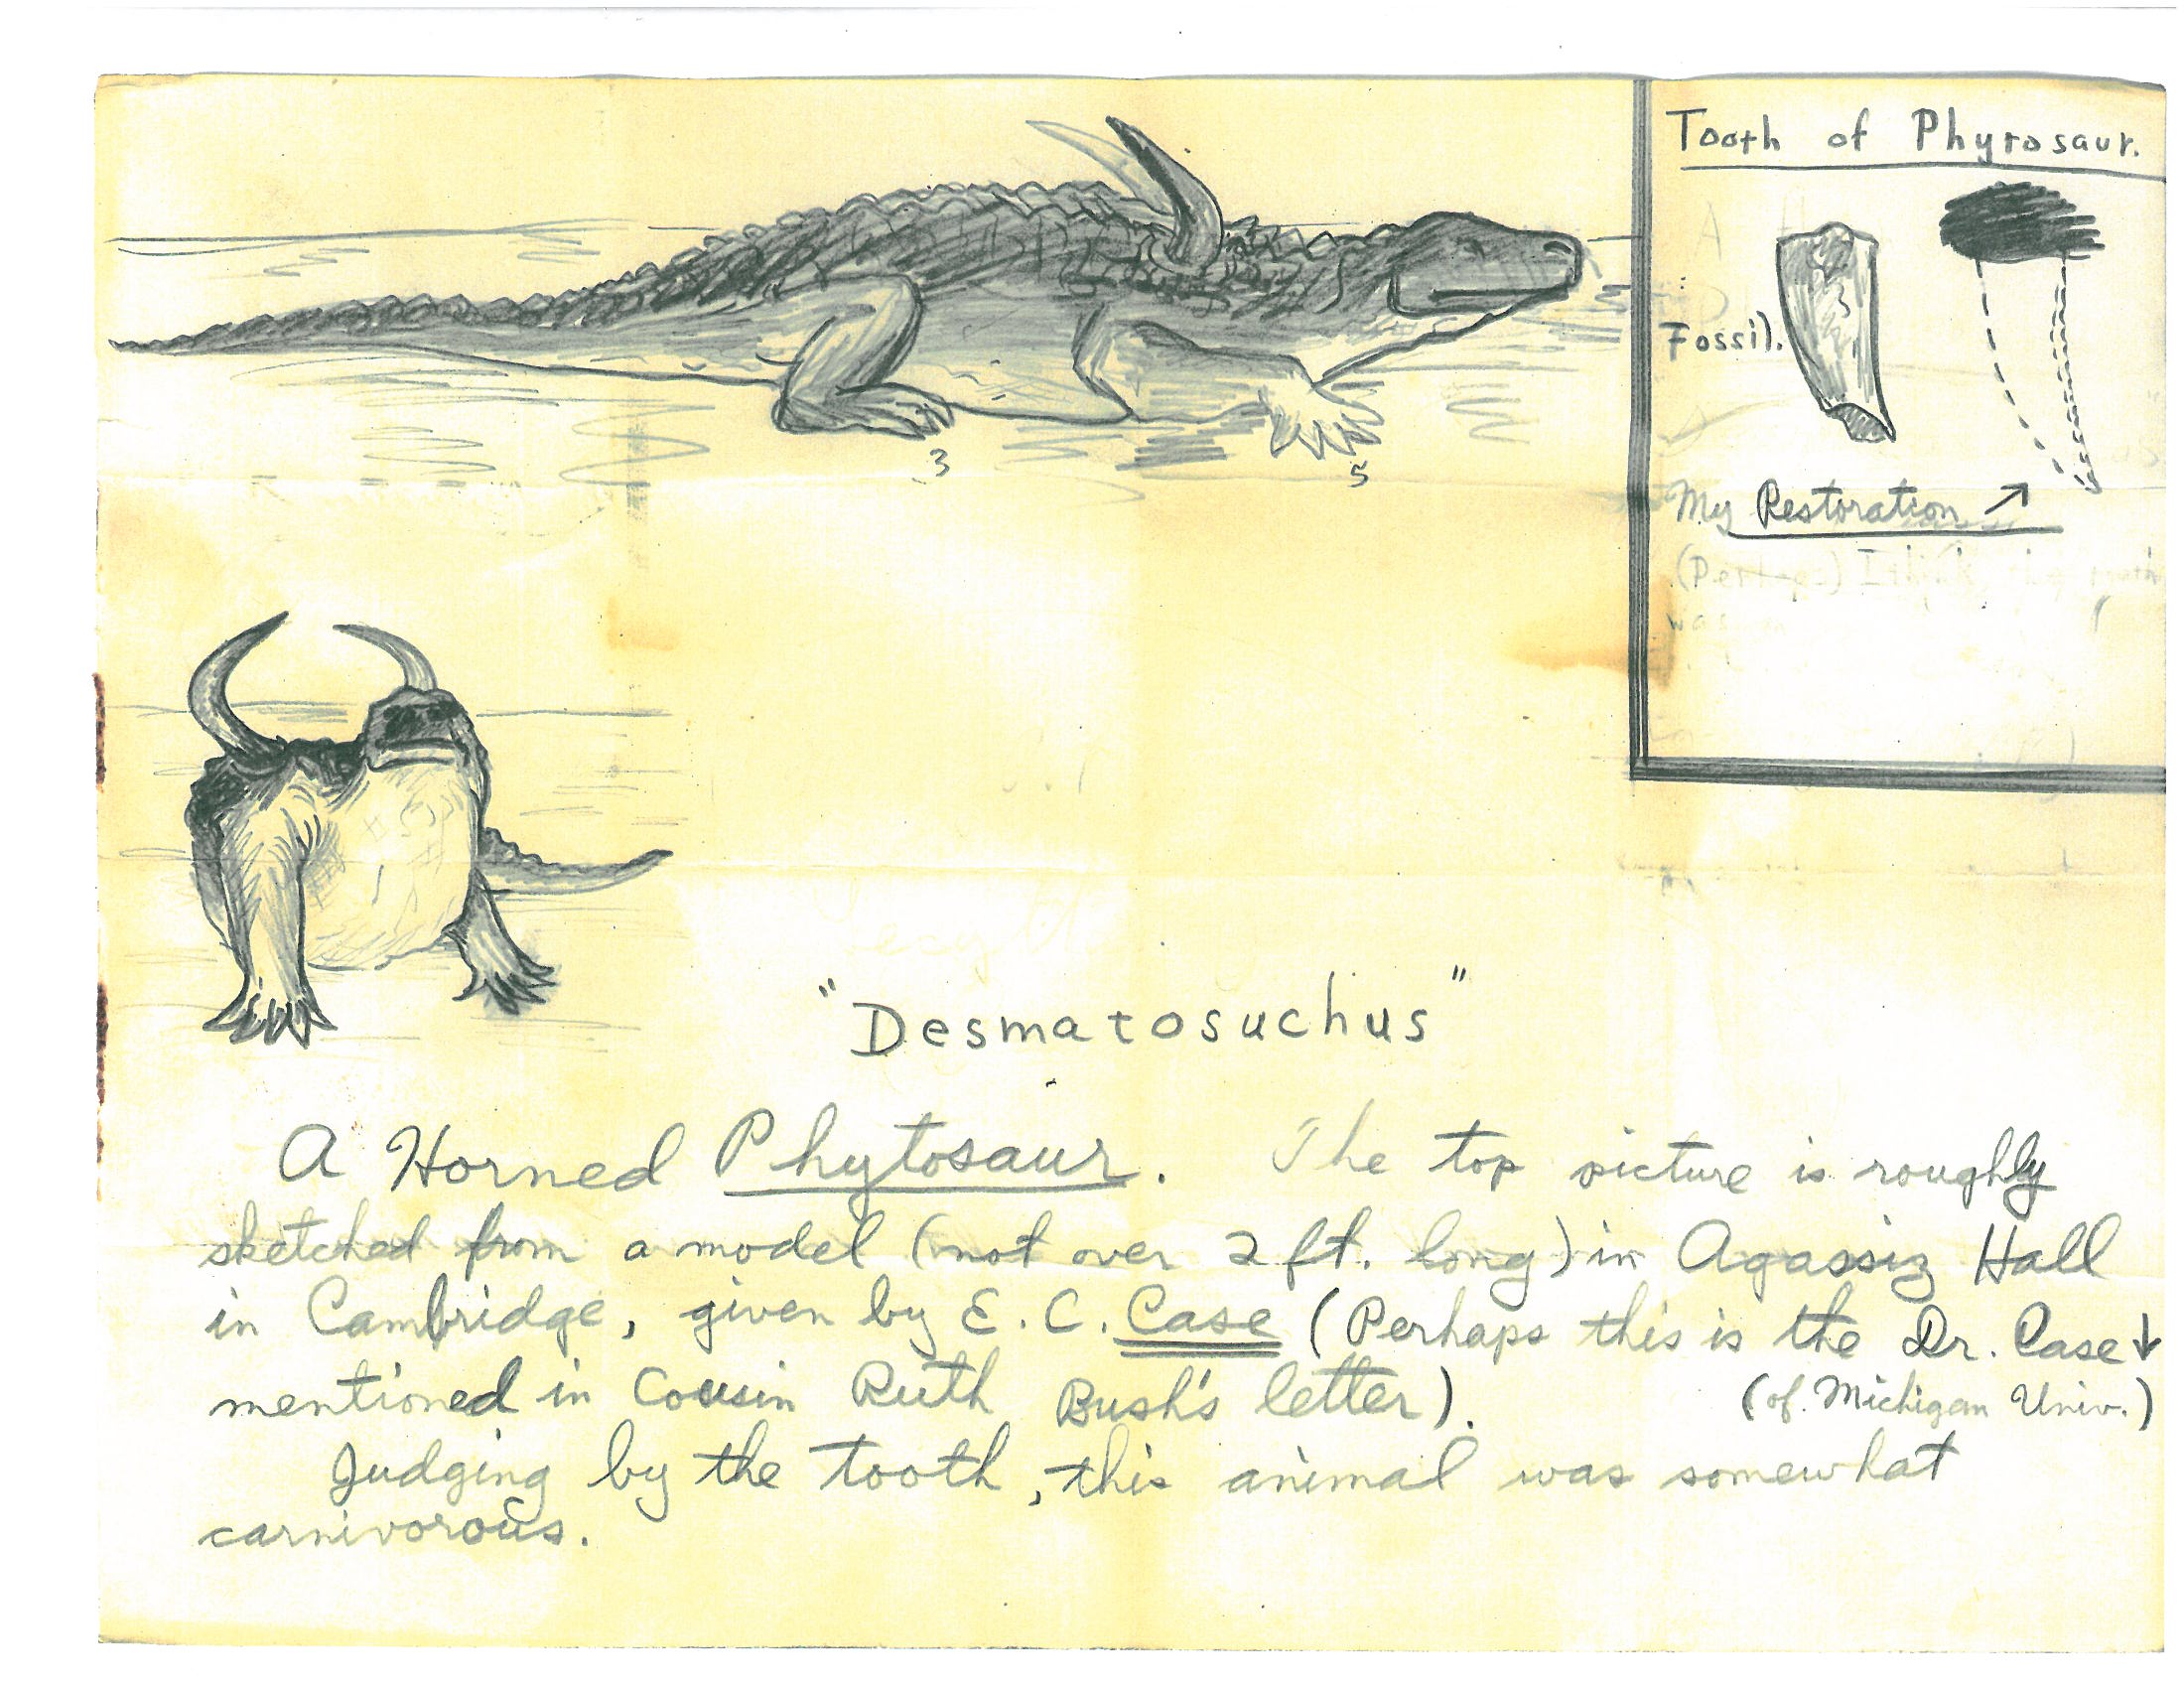 Tooth of Phytosaur.
Fossil.
My Restoration ↗
(Perhaps) I think the tooth
was
3
5
"Desmatosuchus"
A Horned Phytosaur. The top picture is roughly
sketched from a model (not over 2 ft. long) in Agassiz Hall
in Cambridge, given by E. C. Case (Perhaps this is the Dr. Case ↓
mentioned in Cousin Ruth Bush's letter). (of Michigan Univ.)
Judging by the tooth, this animal was somewhat
carnivorous.